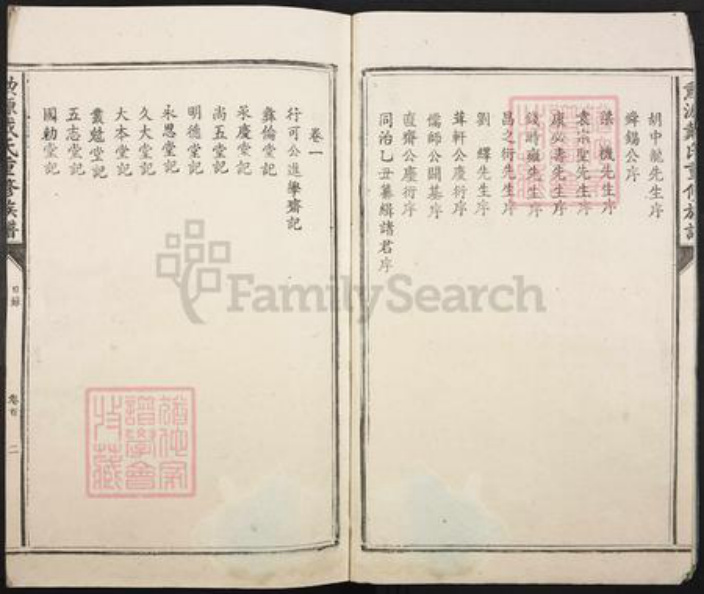 胡中龍先生序
舜錫公序
梁 機先生序
袁宗聖先生序
康必壽先生序
錢時雍先生序
昌之衍先生序
劉 繹先生序
葺軒公慶衍序
儒師公開基序
直齊公慶衍序
同治乙丑纂緝諸君序
卷一
行可公進學齋記
彝倫堂記
承慶堂記
尚五堂記
明德堂記
永思堂記
久大堂記
大本堂記
五志堂記
國勅堂記
源戴氏重修族譜
目錄
卷首
二
FamilySearch